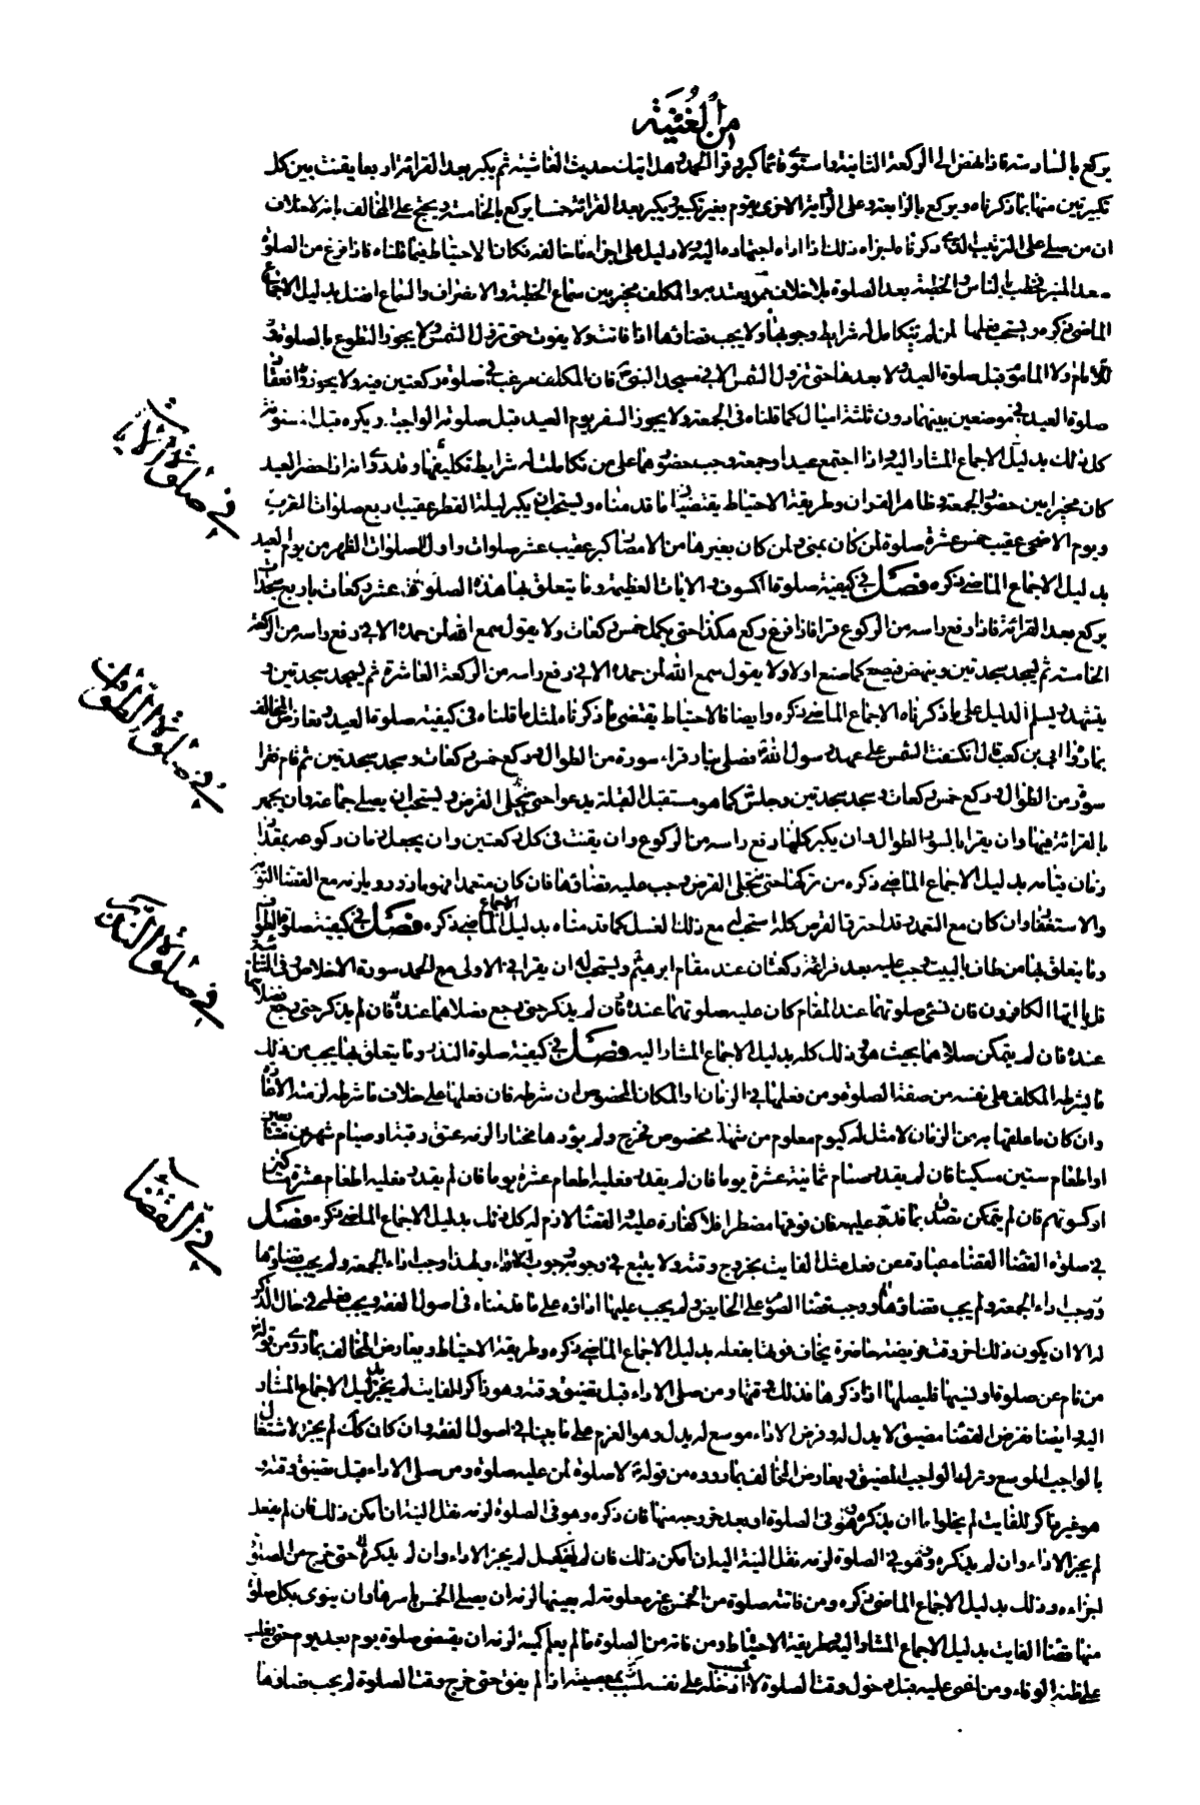 من الغنية
يركع بالسادسة فاذا نهض الى الركعة الثانية واستوى قائما كبر وقرا الحمد و هل اتيك حديث الغاشية ثم يكبر بعد القرائة اربعا يقنت بين كل
تكبيرتين منها بما ذكرناه ويركع بالرابعة وعلى الرواية الاخرى يقوم بغير تكبير ويكبر بعد القرائة خمسا يركع بالخامسة ويحتج على المخالف بانه لا خلاف
ان من صلى على الترتيب الذى ذكرناه اجزاه ذلك اذا اداه اجتهاده اليه ولا دليل على اجزاء ما خالفه فكان الاحتياط فيما قلناه فاذا فرغ من الصلوة
صعد المنبر فخطب بالناس والخطبة بعد الصلوة بلا خلاف ممن يعتد به والمكلف مخير بين سماع الخطبة والانصراف والسماع افضل بدليل الاجماع
الماضى ذكره ويستحب فعلها لمن لم تتكامل له شرايط وجوبها ولا يجب قضاؤها اذا فاتت ولا يفوت حتى تزول الشمس ولا يجوز التطوع بالصلوة
للامام ولا الماموم قبل صلوة العيد ولا بعدها حتى تزول الشمس الا فى مسجد النبى ص فان المكلف مرغب فى صلوة ركعتين فيه ولا يجوز انعقاد
صلوة العيد فى موضعين بينهما دون ثلثة اميال كما قلناه فى الجمعة ولا يجوز السفر يوم العيد قبل صلوته الواجبة ويكره قبل المسنونة
كل ذلك بدليل الاجماع المشار اليه واذا اجتمع عيد وجمعة وجب حضورهما على من تكاملت له شرايط تكليفهما وقد روى انه اذا حضر العيد
كان مخيرا بين حضور الجمعة وظاهر القران وطريقة الاحتياط يقتضيان ما قدمناه ويستحب ان يكبر ليلة الفطر عقيب اربع صلوات المغرب
ويوم الاضحى عقيب خمس عشرة صلوة لمن كان بمنى ولمن كان بغيرها من الامصار اكبر عقيب عشر صلوات واول الصلوات الظهر من يوم العيد
بدليل الاجماع الماضى ذكره فصل فى كيفية صلوة الكسوف والايات العظيمة وما يتعلق بها هذه الصلوة عشر ركعات باربع سجدات
يركع بعد القرائة فاذا رفع راسه من الركوع قرا فاذا فرغ ركع هكذا حتى يكمل خمس ركعات ولا يقول سمع الله لمن حمده الا فى رفع راسه من الركعة
الخامسة ثم يسجد سجدتين وينهض فيصنع كما صنع اولا ولا يقول سمع الله لمن حمده الا فى رفع راسه من الركعة العاشرة ثم يسجد سجدتين و
يتشهد ويسلم الدليل على ما ذكرناه الاجماع الماضى ذكره وايضا فالاحتياط يقتضى ما ذكرناه لمثل ما قلناه فى كيفية صلوة العيد ونعارض المخالف
بما رواه ابى بن كعب قال انكسفت الشمس على عهد رسول الله ص فصلى بنا وقراء سورة من الطوال وركع خمس ركعات وسجد سجدتين ثم قام فقرا
سورة من الطوال وركع خمس ركعات وسجد سجدتين وجلس كما هو مستقبل القبلة يدعوا حتى تجلى القرص ويستحب ان يصلى جماعة وان يجهر
بالقرائة فيها وان يقرا بالسور الطوال وان يكبر كلما رفع راسه من الركوع وان يقنت فى كل ركعتين وان يجعل زمان ركوعه بقدر
زمان قيامه بدليل الاجماع الماضى ذكره من تركها حتى تنجلى القرص وجب عليه قضاؤها فان كان متعمدا فهو مازور ويلزمه مع القضاء التوبة
والاستغفار وان كان مع التعمد قد احترق القرص كله استحب له مع ذلك الغسل كما قدمناه بدليل الاجماع الماضى ذكره فصل فى كيفية صلوة الطواف
وما يتعلق بها من طاف بالبيت وجب عليه بعد فراغه ركعتان عند مقام ابرهيم ويستحب له ان يقرا فى الاولى مع الحمد سورة الاخلاص وفى الثانية
قل يا ايها الكافرون فان نسى صلوتهما عند المقام كان عليه صلوتهما عنده فان لم يذكر حتى رجع فصلاهما عنده فان لم يذكر حتى رجع فصلاهما
عنده فان لم يتمكن صلاهما بحيث هو فى ذلك كله بدليل الاجماع المشار اليه فصل فى كيفية صلوة النذر وما يتعلق بها يجب من ذلك
ما يشرطه المكلف على نفسه من صفة الصلوة ومن فعلها فى الزمان او المكان المخصوص ان شرطه فان فعلها على خلاف ما شرطه لزمه الاعادة
وان كان ما علقها به من الزمان لا مثل له كيوم معلوم من شهر مخصوص فخرج ولم يؤدها مختارا لزمه عتق رقبة او صيام شهرين متتابعين
او اطعام ستين مسكينا فان لم يقدر صام ثمانية عشرة يوما فان لم يقدر فعليه اطعام عشرة
او كسوتهم فان لم يتمكن تصدق بما قدر عليه فان فوتها مضطرا فلا كفارة عليه والقضاء لازم له كل ذلك بدليل الاجماع الماضى ذكره فصل
فى صلوة القضاء القضاء عبارة عن فعل مثل الفايت بخروج وقته ولا يتبع فى وجوبه وجوب الاداء ولهذا وجب اداء الجمعة ولم يجب قضاؤها
ووجب اداء الجمعة ولم يجب قضاؤها ووجب قضاء الصوم على الحايض ولم يجب عليها اداؤه على ما قدمناه فى اصول الفقه ويجب فعله فى حال الذكر
له الا ان يكون ذلك اخر وقت فريضة حاضرة يخاف فوتها بفعله بدليل الاجماع الماضى ذكره وطريقة الاحتياط ويعارض المخالف بما روى من قوله
من نام عن صلوة او نسيها فليصلها اذا ذكرها فذلك وقتها ومن صلى الاداء قبل تضيق وقته وهو ذاكر للفايت لم يجز بدليل الاجماع المشار
اليه وايضا ففرض القضاء مضيق لا بدل له وفرض الاداء موسع له بدل وهو العزم على ما بينا فى اصول الفقه وان كان كك لم يجز الاشتغال
بالواجب الموسع وترك الواجب المضيق ويعارض المخالف بما رووه من قوله لا صلوة لمن عليه صلوة ومن صلى الاداء قبل تضيق وقته و
هو غير ذاكر للفايت لم يخلوا ما ان يذكره وهو فى الصلوة او بعد خروجه منها فان ذكره وهو فى الصلوة لزمه نقل النية ان امكن ذلك فان لم يفعل
لم يجز الاداء وان لم يذكره وهو فى الصلوة لزمه نقل النية اليه ان امكن ذلك فان لم يفعل لم يجز الاداء وان لم يذكره حتى خرج من الصلوة
اجزاءه وذلك بدليل الاجماع الماضى ذكره ومن فاتته صلوة من الخمس غير معلومة له بعينها لزمه ان يصلى الخمس باسرها وان ينوى بكل صلوة
منها قضاء الفايت بدليل الاجماع المشار اليه وطريقة الاحتياط ومن فاته من الصلوة ما لم يعلم كميته لزمه ان يقضى صلوة يوم بعد يوم حتى يغلب
على ظنه الوفاء ومن اغمى عليه قبل دخول وقت الصلوة لا بسبب ادخله على نفسه بمعصية اذا لم يفق حتى خرج وقت الصلوة لم يجب قضاؤها
فى صلوة الايات
فى صلوة الطواف
فى صلوة النذر
فى القضاء